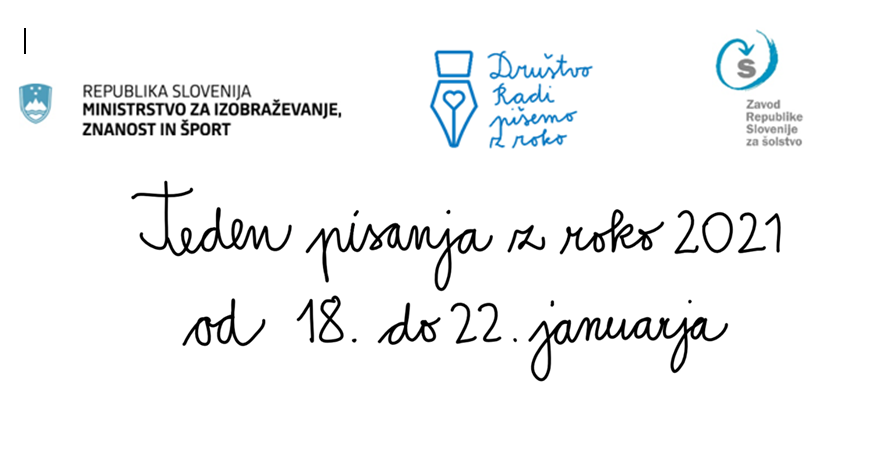 REPUBLIKA SLOVENIJA
MINISTRSTVO ZA IZOBRAŽEVANJE,
ZNANOST IN ŠPORT
Društvo
Radi
pišemo
z roko
Š
Zavod
Republike
Slovenije
za šolstvo
Teden pisanja z roko 2021
od 18. do 22. januarja